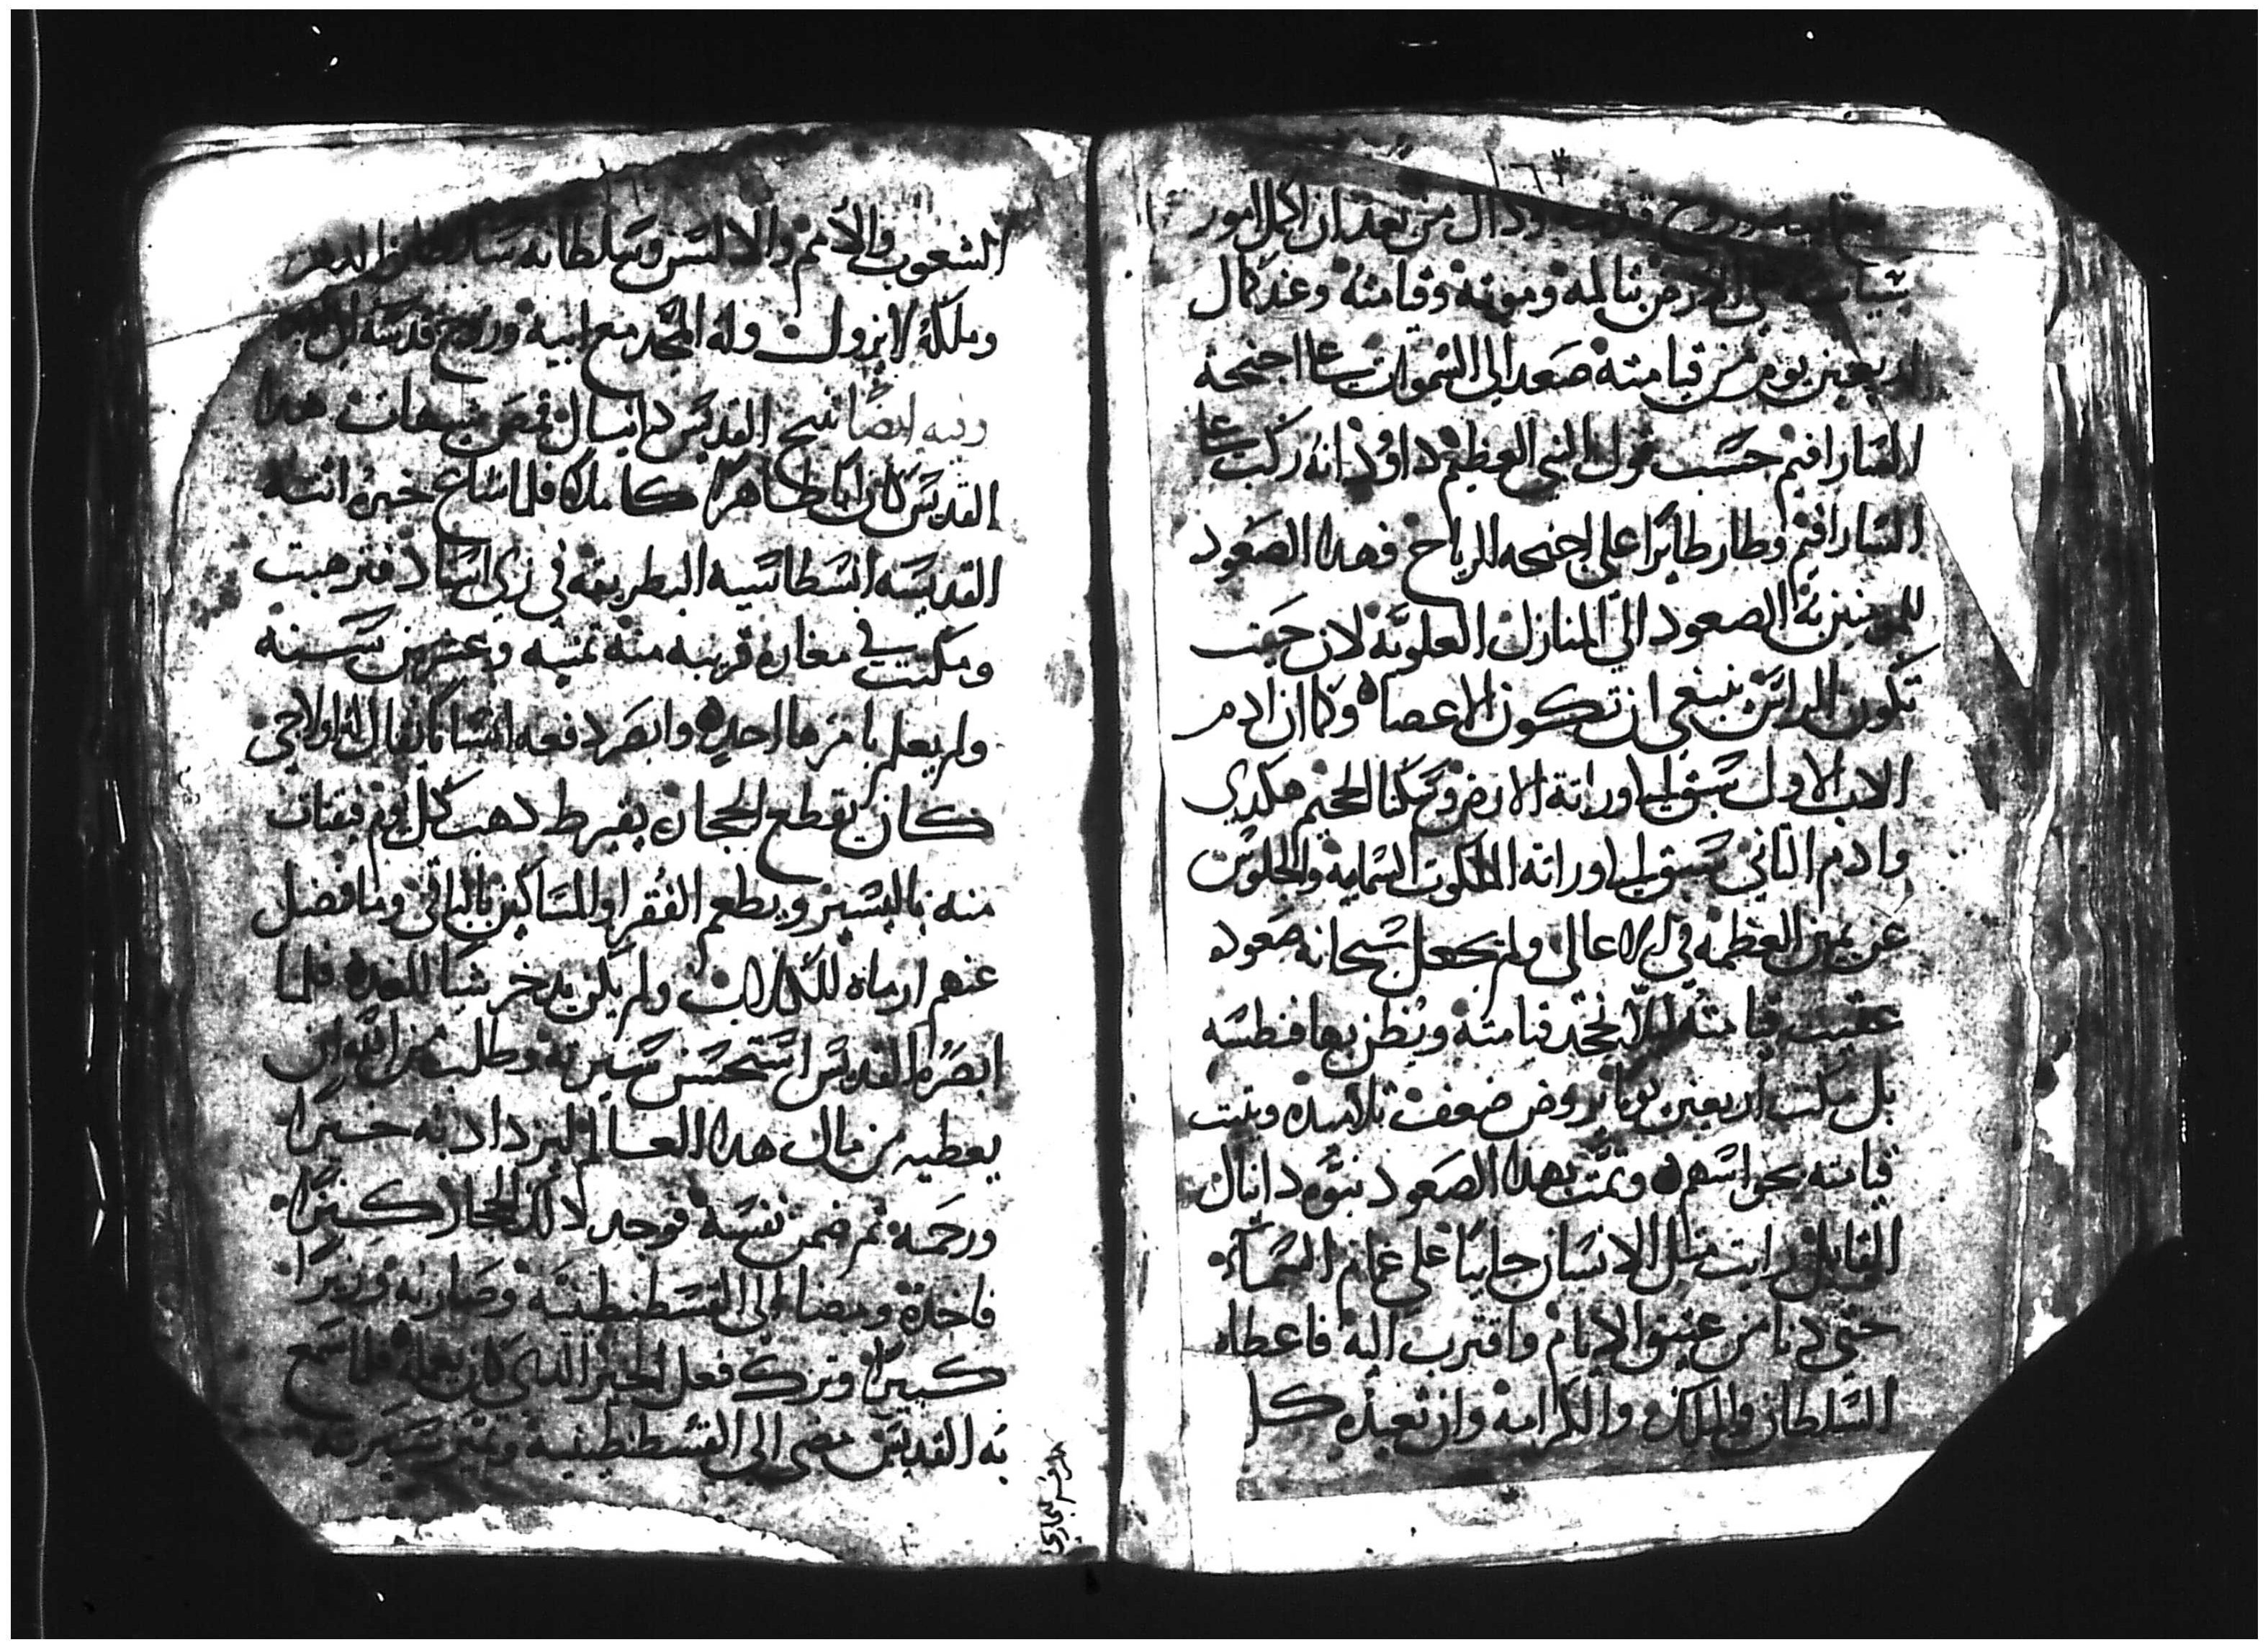 ١٦٣
ابيه وروح قدسه وذلك من بعد ان اكمل امور
في الارض بتالمه وموته وقيامته وعند كمال
اربعين يوم من قيامته صعد الى السموات على اجنحة
السارافيم حسب قول النبي العظيم داوود انه ركب على
السارافيم وطار طايرا على اجنحه الرياح فهدا الصعود
للمومنين به الصعود الى المنازل العلويه لان حيث
تكون الراس ينبغي ان تكون الاعضاه وكما ان ادم
الاب الاول سبق لها وراتة الارض وسكنا الجحيم هكدي
وادم التاني سبق لها وراتة الملكوت السمايه والجلوس
عن يمين العظمه في العالى ولم يجعل سبحانه صعوده
عقيب قيامته ليلا تجحد قيامته ويظن بها فطسه
بل مكت اربعين يوما يروض ضعف تلاميده ويتبت
قيامته بحواسهم وتمت بهدا الصعود نبوة دانيال
القايل رايت متل الانسان جاييا على غمام السماء
حتى دنا من عتيق الايام واقترب اليه فاعطاه
السلطان والملك والكرامه وان تعبده كل
الشعوب والامم والالسن وسلطانه سلطان الدهر
وملكه لا يزول وله المجد مع ابيه وروح قدسه الى الابد
وفيه ايضا تنيح القديس دانيال قمص شيهات هدا
القديس كان ابا طاهرا كاملا فلما شاع خبره اتته
القديسه انسطاسيه البطريقه في زي استاد فترهبت
ومكتت في مغاره قريبه منه تمنيه وعشرين سنه
ولم يعلم بامرها احد وابصر دفعه انسانا يقال له اولاجي
كان يقطع الحجاره بقيرط دهب كل يوم يقتات
منه باليسير ويطعم الفقرا والمساكين بالباقي وما فضل
عنهم ارماه للكلاب ولم يكن يدخر شيا للغد فلما
ابصره القديس استحسن سيرته وطلب من الله ان
يعطيه من مال هدا العالم ليزداد به خيرا
ورحمه تم ضمن نفسه فوجد دلك الحجار كنزا
فاخده ومضا الى القسطنطينيه وصار به وزيرا
كبيرا وترك فعل الخير الدي كان يعمله فلما سمع
به القديس مضى الى القسطنطينيه وتميز سيرته